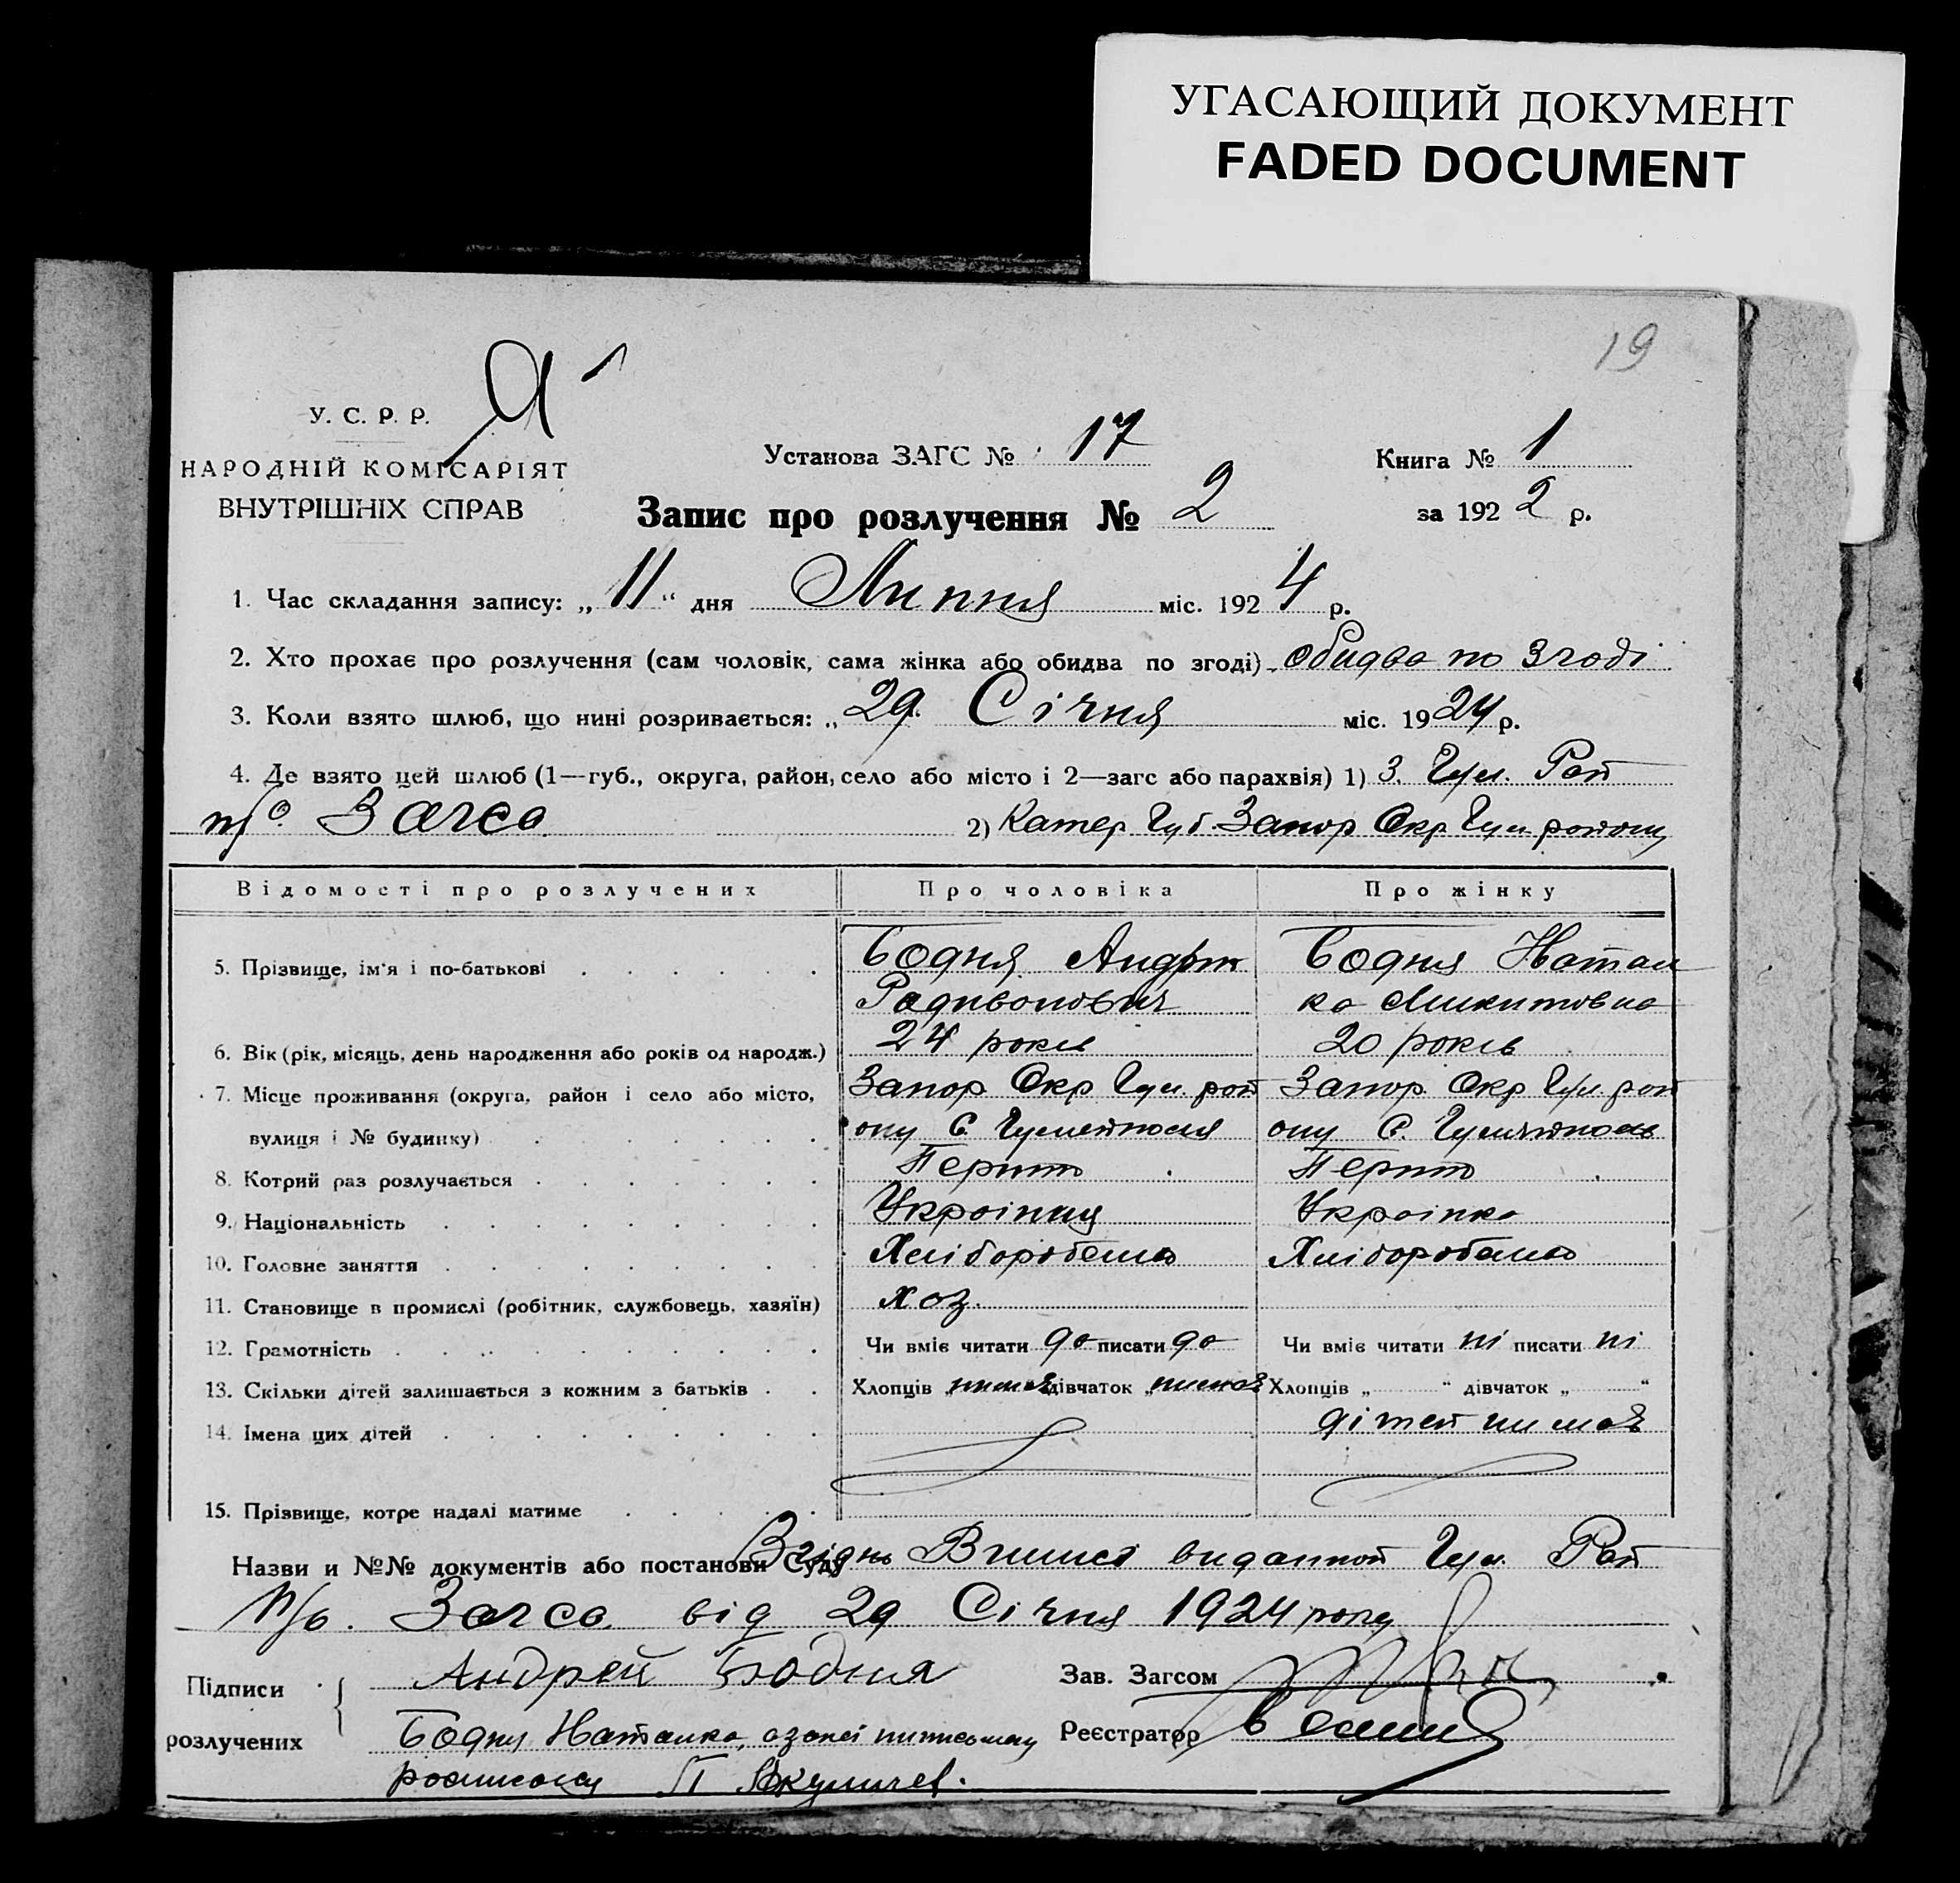 УГАСАЮЩИЙ ДОКУМЕНТ
FADED DOCUMENT
19
У. С. Р. Р.
НАРОДНІЙ КОМІСАРІЯТ
ВНУТРІШНІХ СПРАВ
Установа ЗАГС № 17
Книга № 1
Запис про розлучення № 2
за 1922 р.
1. Час складання запису: „11“ дня Липня міс. 1924 р.
2. Хто прохає про розлучення (сам чоловік, сама жінка або обидва по згоді) обидва по згоді
3. Коли взято шлюб, що нині розривається: „29 Січня міс. 1924 р.
4. Де взято цей шлюб (1—губ., округа, район, село або місто і 2—загс або парахвія) 1) З. Гул. Рай
п/о. Загса 2) Катер Губ. Запор Окр Гул району
Відомості про розлучених
Про чоловіка
Про жінку
5. Прізвище, ім'я і по-батькові
Бодня Андрій
Бодня Натал
Радивонович
ка Микитовна
6. Вік (рік, місяць, день народження або років од народж.)
24 років
20 років
7. Місце проживання (округа, район і село або місто,
Запор. Окр Гул. рай
Запор. Окр Гул. рай
вулиця і № будинку)
ону С. Гуляйполя
ону С. Гуляйполь
8. Котрий раз розлучається
Перший
Перший
9. Національність
Українец
Українка
10. Головне заняття
Хліборобство
Хліборобство
11. Становище в промислі (робітник, службовець, хазяїн)
хоз.
12. Грамотність
Чи вміє читати да писати да
Чи вміє читати ні писати ні
13. Скільки дітей залишається з кожним з батьків
Хлопців „нимає дівчаток „нимає
Хлопців „ “ дівчаток „ “
14. Імена цих дітей
дітей нимає
15. Прізвище, котре надалі матиме
Назви и №№ документів або постанови Суду Згідно Виписі виданной Гул. Рай
п/о. Загса від 29 Січня 1924 року
Підписи
розлучених
Андрей Бодня
Зав. Загсом
Бодня Наталка, а за неї
Реєстратор